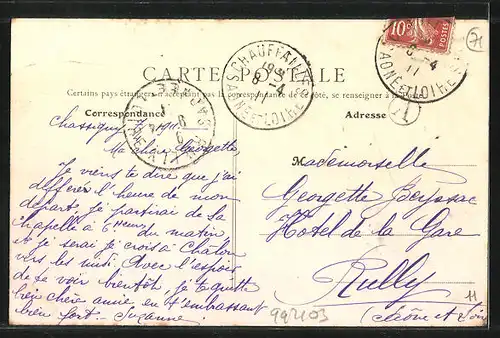 CARTE POSTALE
Certains pays étrangers n'acceptant pas la correspondance de ce côté, se renseigner à la
Correspondance
Adresse
10c
POSTES
CHAUFFAILLES
8 -4
11
SAONE ET LOIRE
8 -4
11
SAONE ET LOIRE
71
Chassigny 1911
Ma chère Georgette
Je viens te dire que j'ai
différer l'heure de mon
départ, je partirai de La
Chapelle à 6 Heures du matin
et je serai je crois à Châlon
vers les midi. Avec l'espoir
de te voir bientôt, je te quitte
bien chère amie, en t'embrassant
bien fort. Suzanne
Mademoiselle
Georgette Beyssac
Hôtel de la Gare
Rully
(Saône et Loire
997103
11